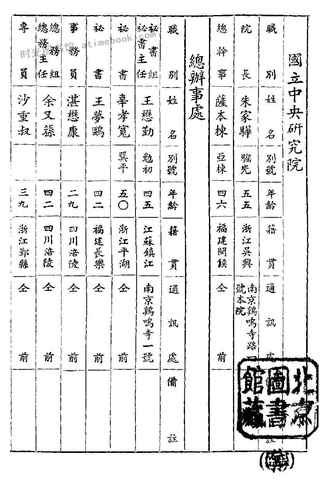 國立中央研究院
職別 姓名 別號 年齡 籍貫 通訊處 備註
院長 朱家驊 騮先 五五 浙江吳興 南京鷄鳴寺路一號本院
總幹事 薩本棟 亞棟 四六 福建閩侯 仝前
總辦事處
職別 姓名 別號 年齡 籍貫 通訊處 備註
秘書組秘書主任 王懋勤 勉初 四五 江蘇鎮江 南京鷄鳴寺一號
秘書 辜孝寬 巽平 五〇 浙江平湖 仝前
秘書 王夢鷗 四二 福建長樂 仝前
事務員 湛懋康 二九 四川涪陵 仝前
總務組總務主任 余又蓀 四二 四川涪陵 仝前
專員 沙重叔 三九 浙江鄞縣 仝前
北京圖書館藏